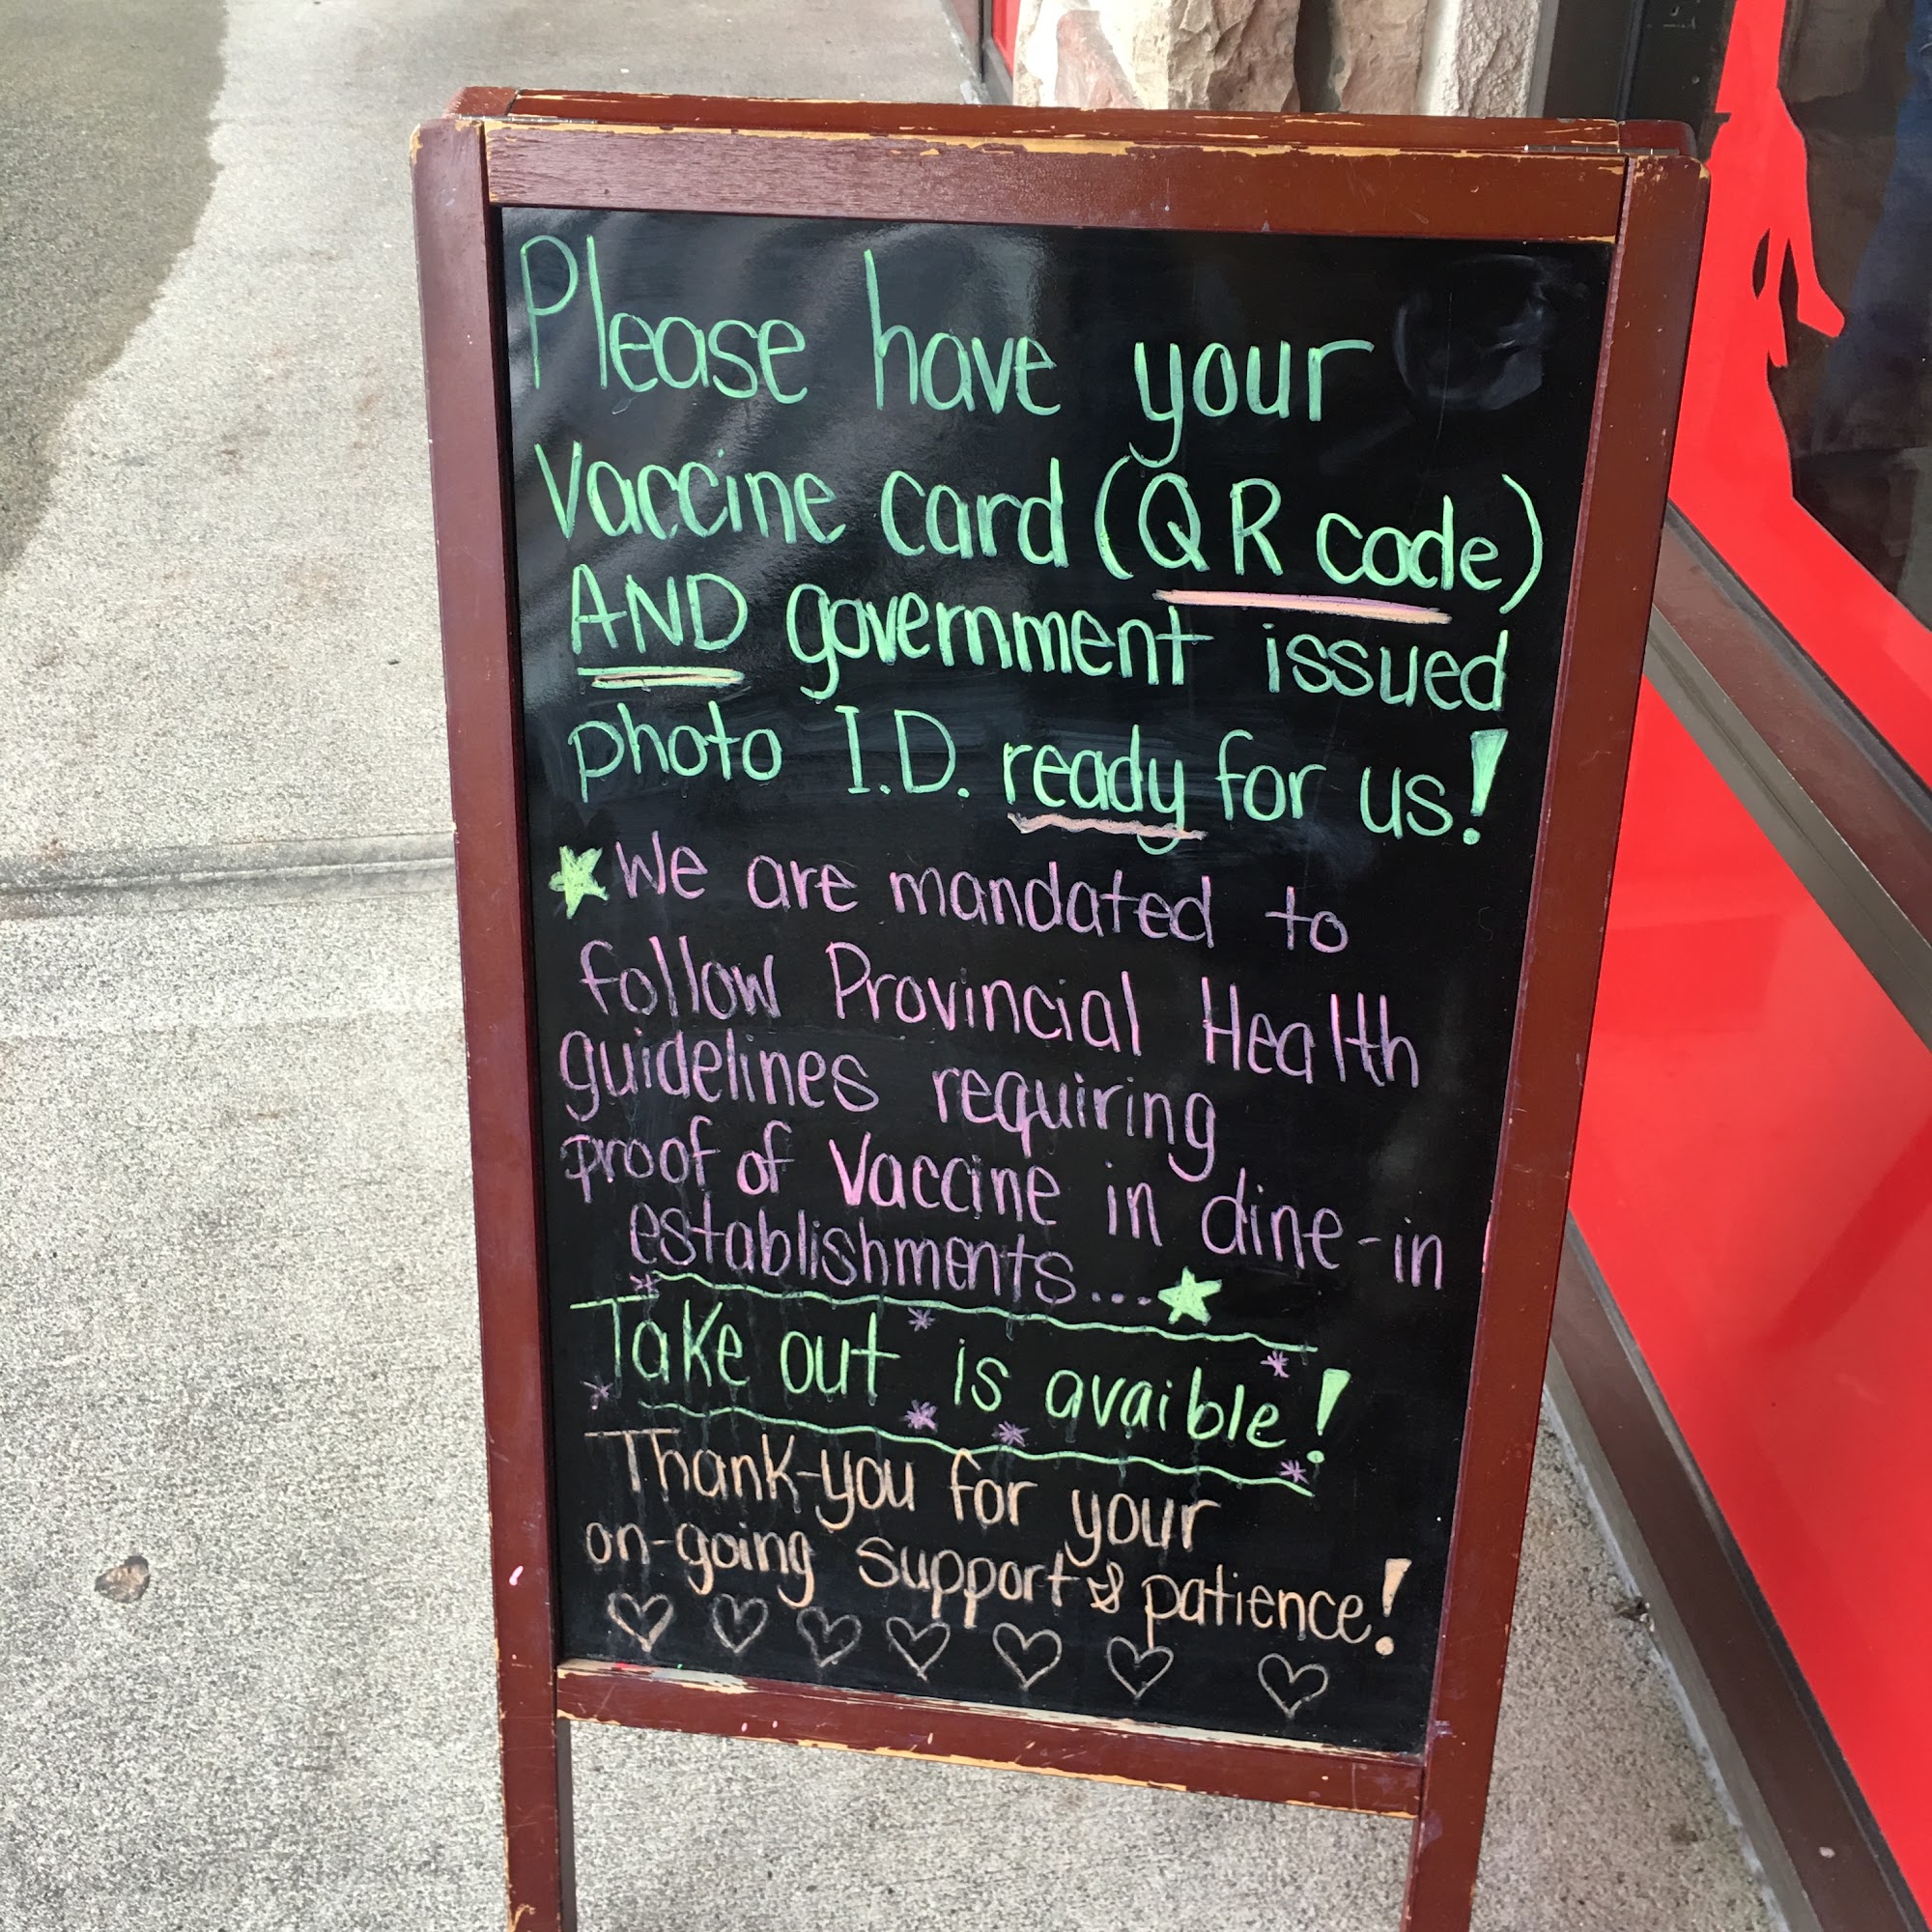 Please have your
vaccine card (QR code)
AND government issued
photo I.D. ready for us!
We are mandated to
follow Provincial Health
guidelines requiring
proof of vaccine in dine-in
establishments...
Take out is avaible!
Thank-you for your
on-going support & patience!